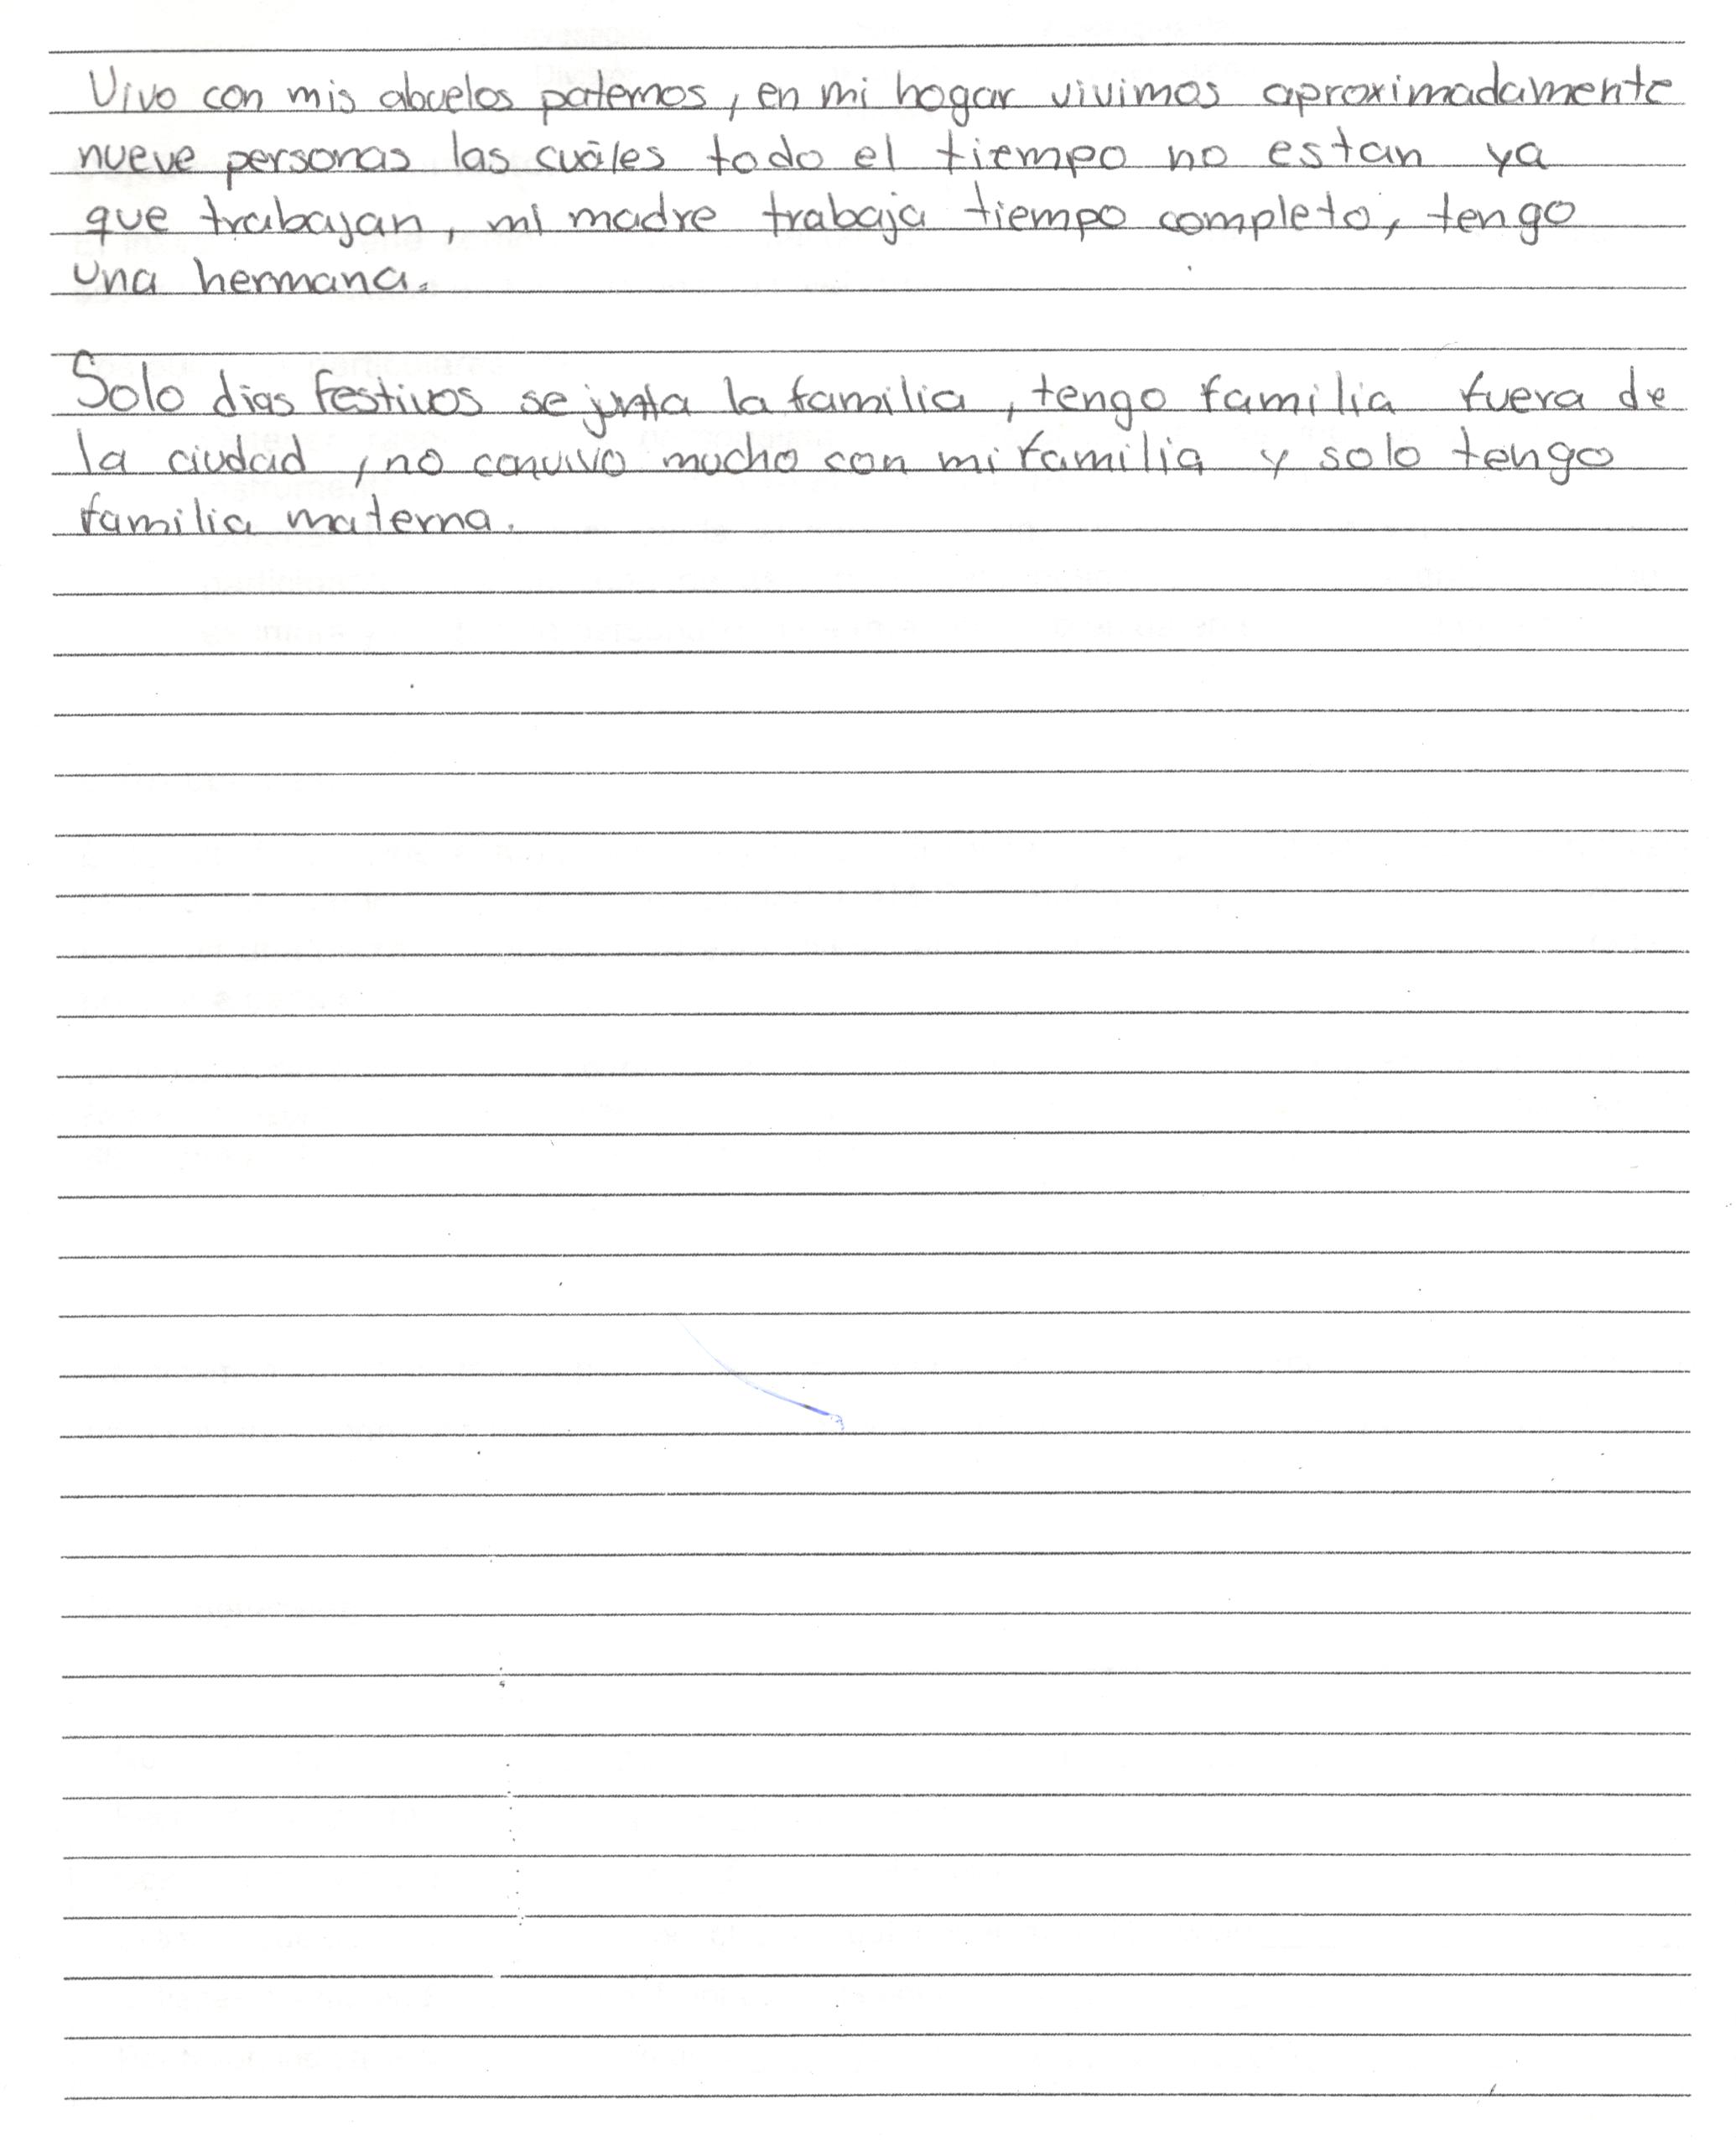 Vivo con mis abuelos paternos, en mi hogar vivimos aproximadamente
nueve personas las cuáles todo el tiempo no estan ya
que trabajan, mi madre trabaja tiempo completo, tengo
una hermana.
Solo dias festivos se junta la familia, tengo familia fuera de
la ciudad, no convivo mucho con mi familia y solo tengo
familia materna.